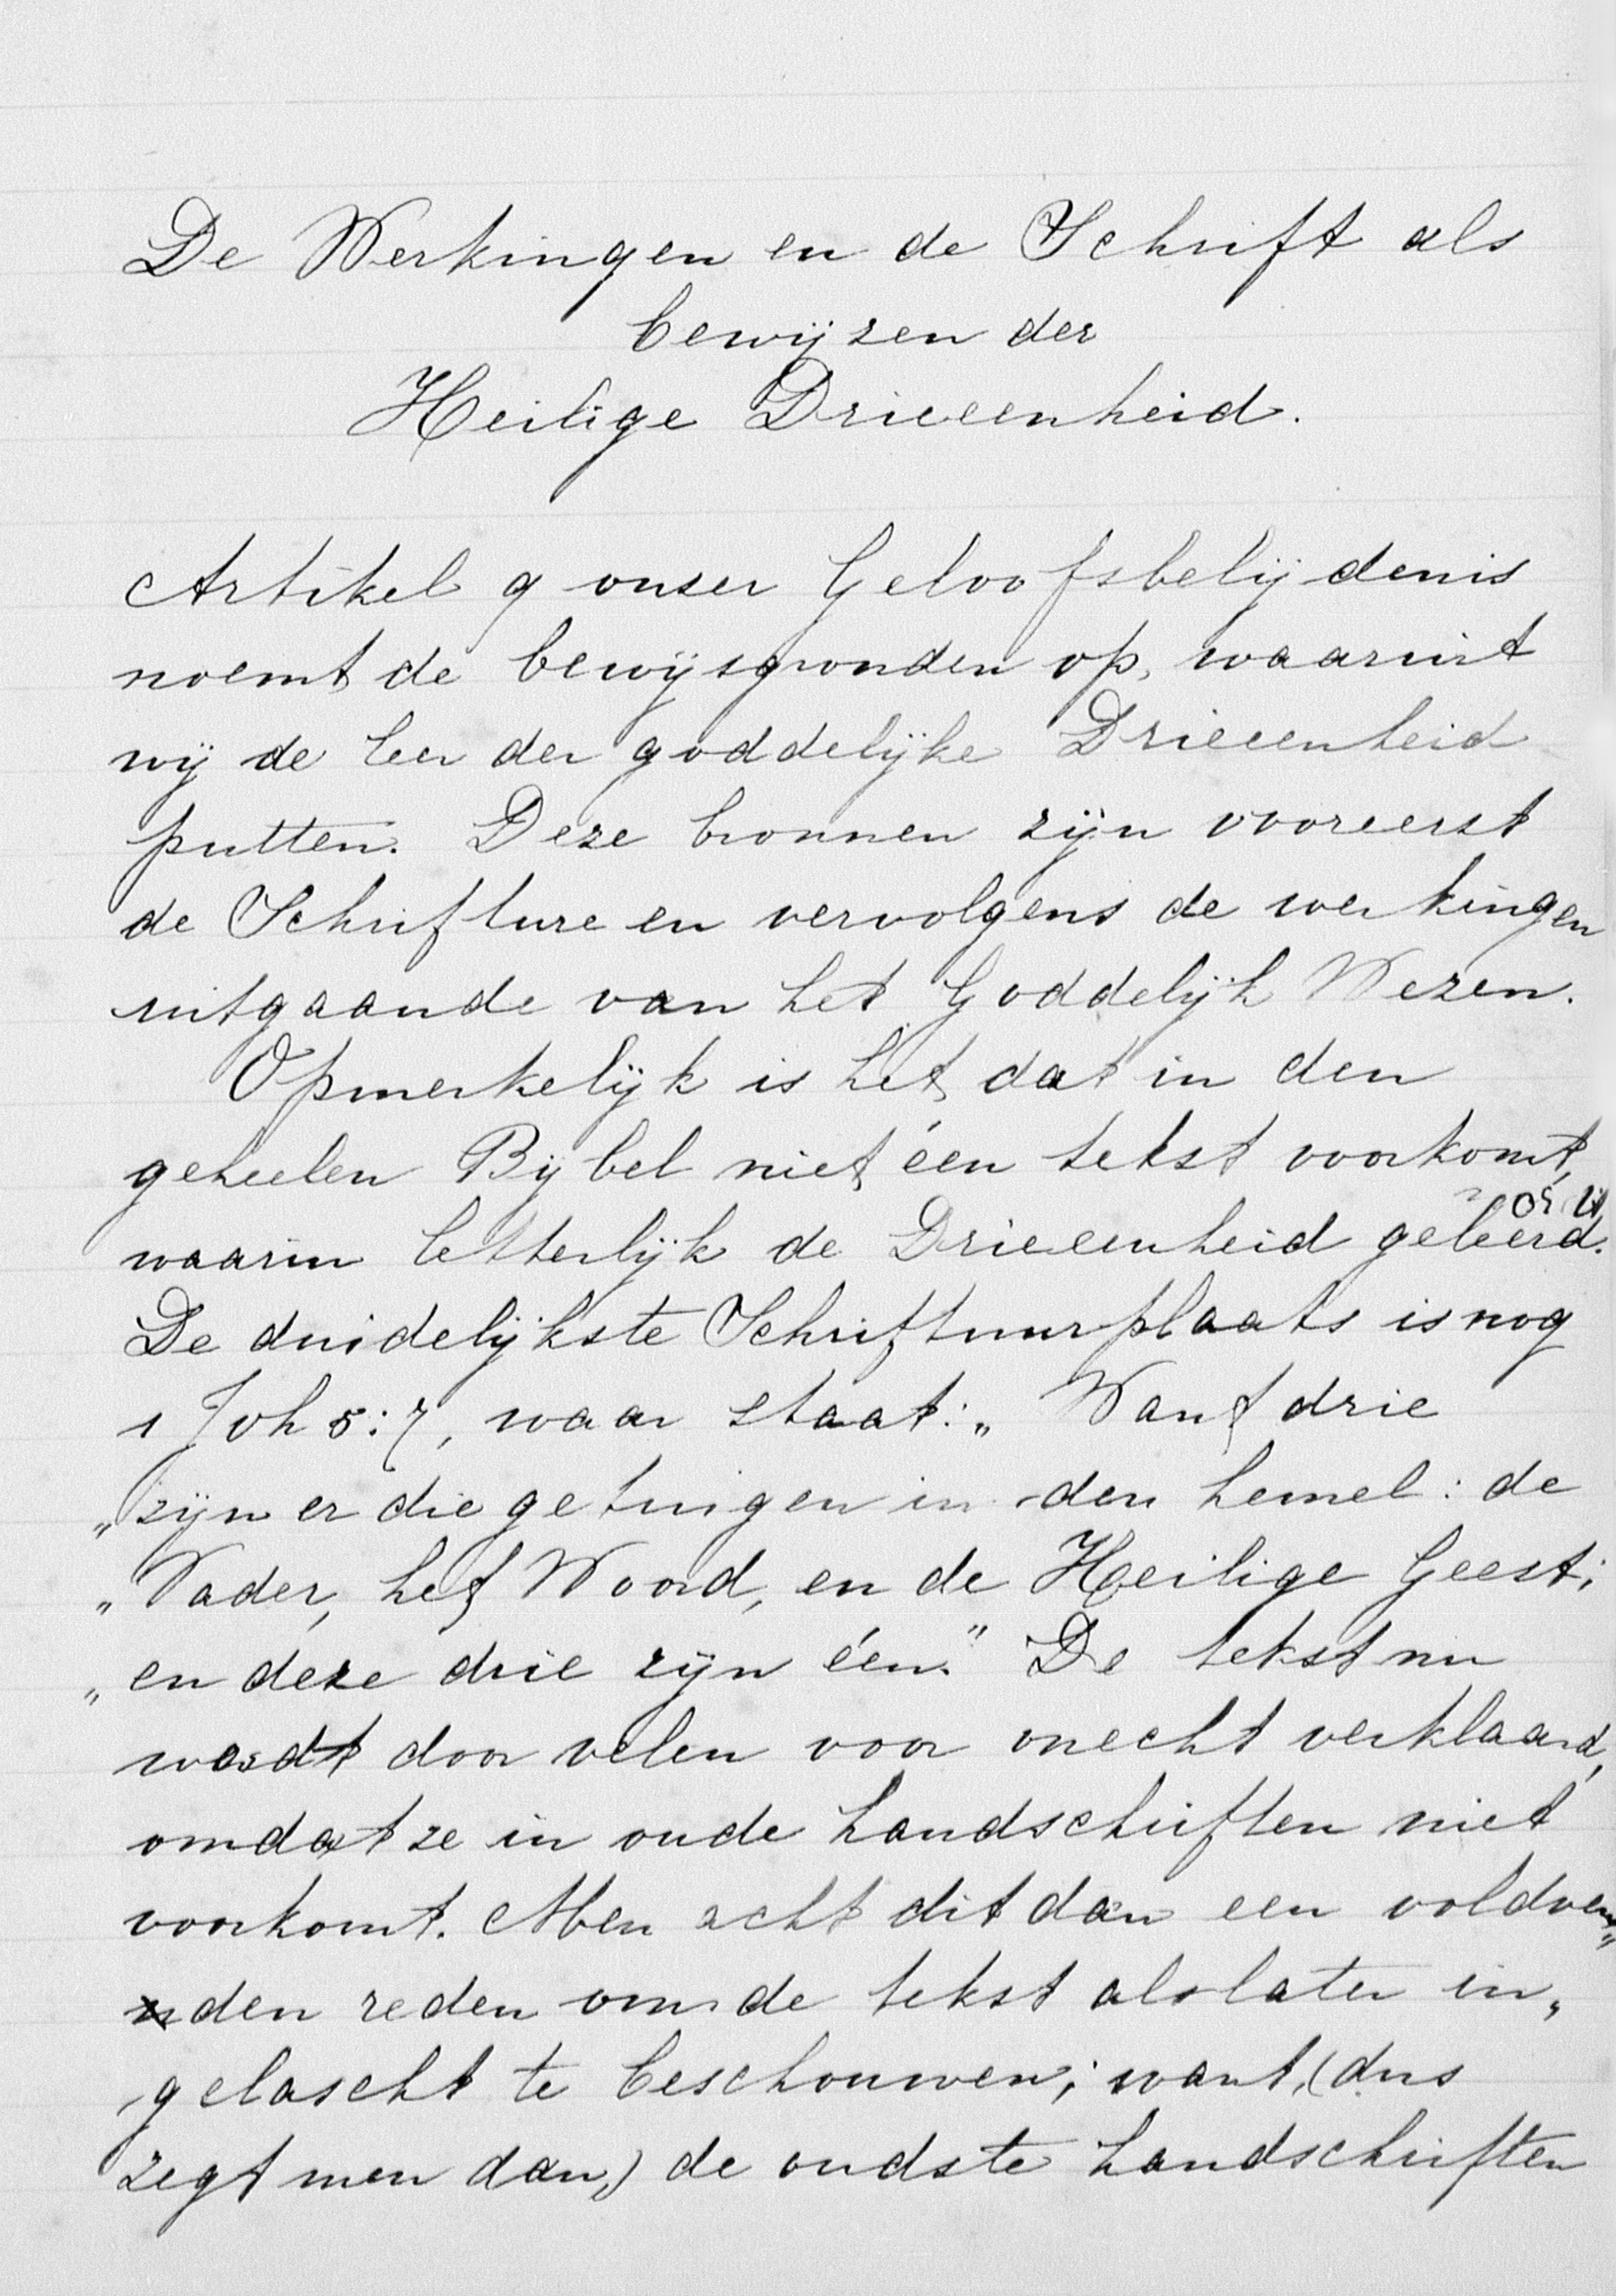 De Werkingen en de Schrift als
bewijzen der
Heilige Drieeenheid.
Artikel 9 onser Geloofsbelijdenis
noemt de bewijsgronden op, waaruit
wij de leer der goddelijke Drieeenheid
putten. Deze bronnen zijn vooreerst
de Schrifture en vervolgens de werkingen
uitgaande van het Goddelijk Wezen.
Opmerkelijk is het dat in den
geheelen Bijbel niet één tekst voorkomt,
waarin letterlijk de Drieeenheid geleerd.
De duidelijkste Schriftuurplaats is nog
1 Joh 5:7, waar staat: „Want drie
„zijn er die getuigen in den hemel: de
„Vader, het Woord, en de Heilige Geest;
„en deze drie zijn één." De tekst nu
wordt door velen voor onecht verklaard,
omdat ze in oude handschriften niet
voorkomt. Men acht dit dan een voldoen„
den reden om de tekst als later in„
gelascht te beschouwen; want, (dus
zegt men dan,) de oudste handschriften